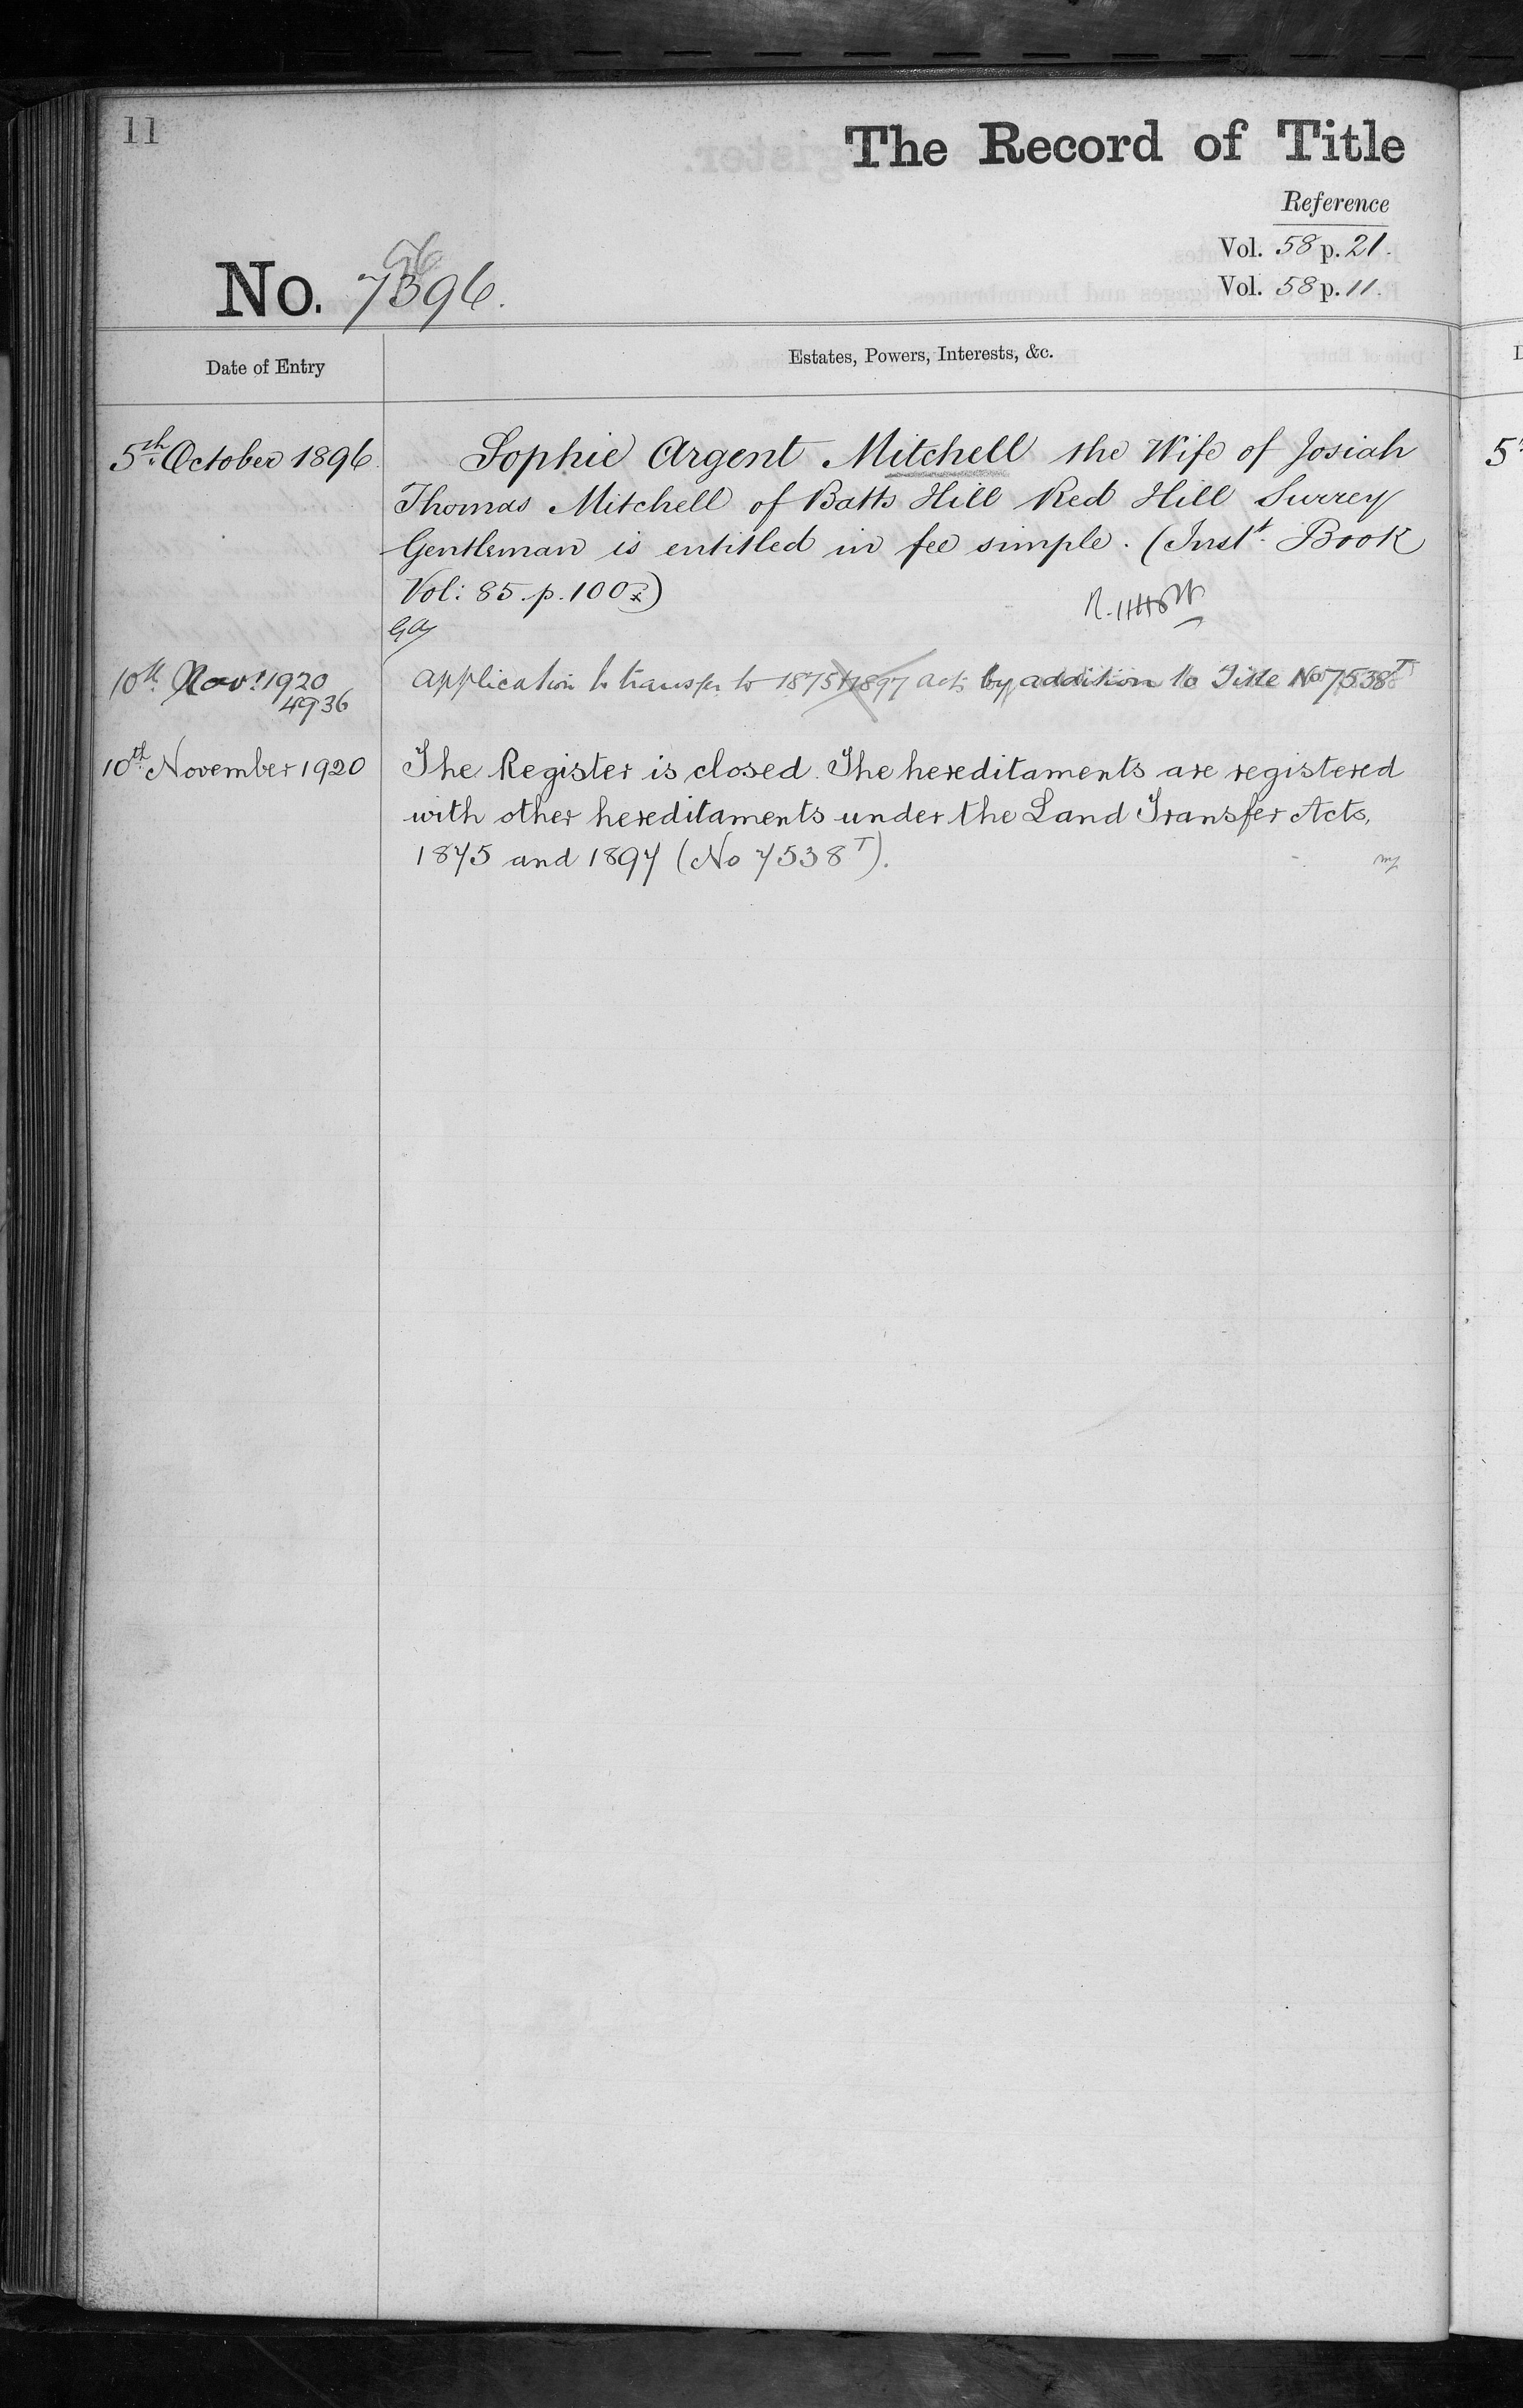 11
The Record of Title
Reference
Vol. 58 p. 21.
Vol. 58 p. 11.
No. 7396.
Date of Entry
Estates, Powers, Interests, &c.
5th October 1896
Sophie Argent Mitchell the Wife of Josiah
Thomas Mitchell of Batts Hill Red Hill Surrey
Gentleman is entitled in fee simple. (Inst. Book
Vol: 85. p. 100)
10th Novr. 1920
4936
Application to transfer to 1875 + 1897 Acts by addition to Title No 7538T
10th November 1920
The Register is closed. The hereditaments are registered
with other hereditaments under the Land Transfer Acts,
1875 and 1897 (No 7538T).
5